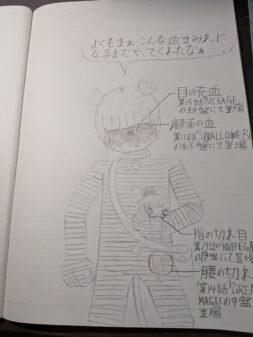 よくもまぁ、こんな血まみれに
なるまでやってくれたなぁ…。
目の充血
第15話「MIRAGE」
の終盤にて登場
顔面の血
第11話「SWALLOWER」
の終盤にて登場
指の切れ目
の序盤にて登場
腰の切れ
第14話「GRE
MAGIC」の中盤
登場